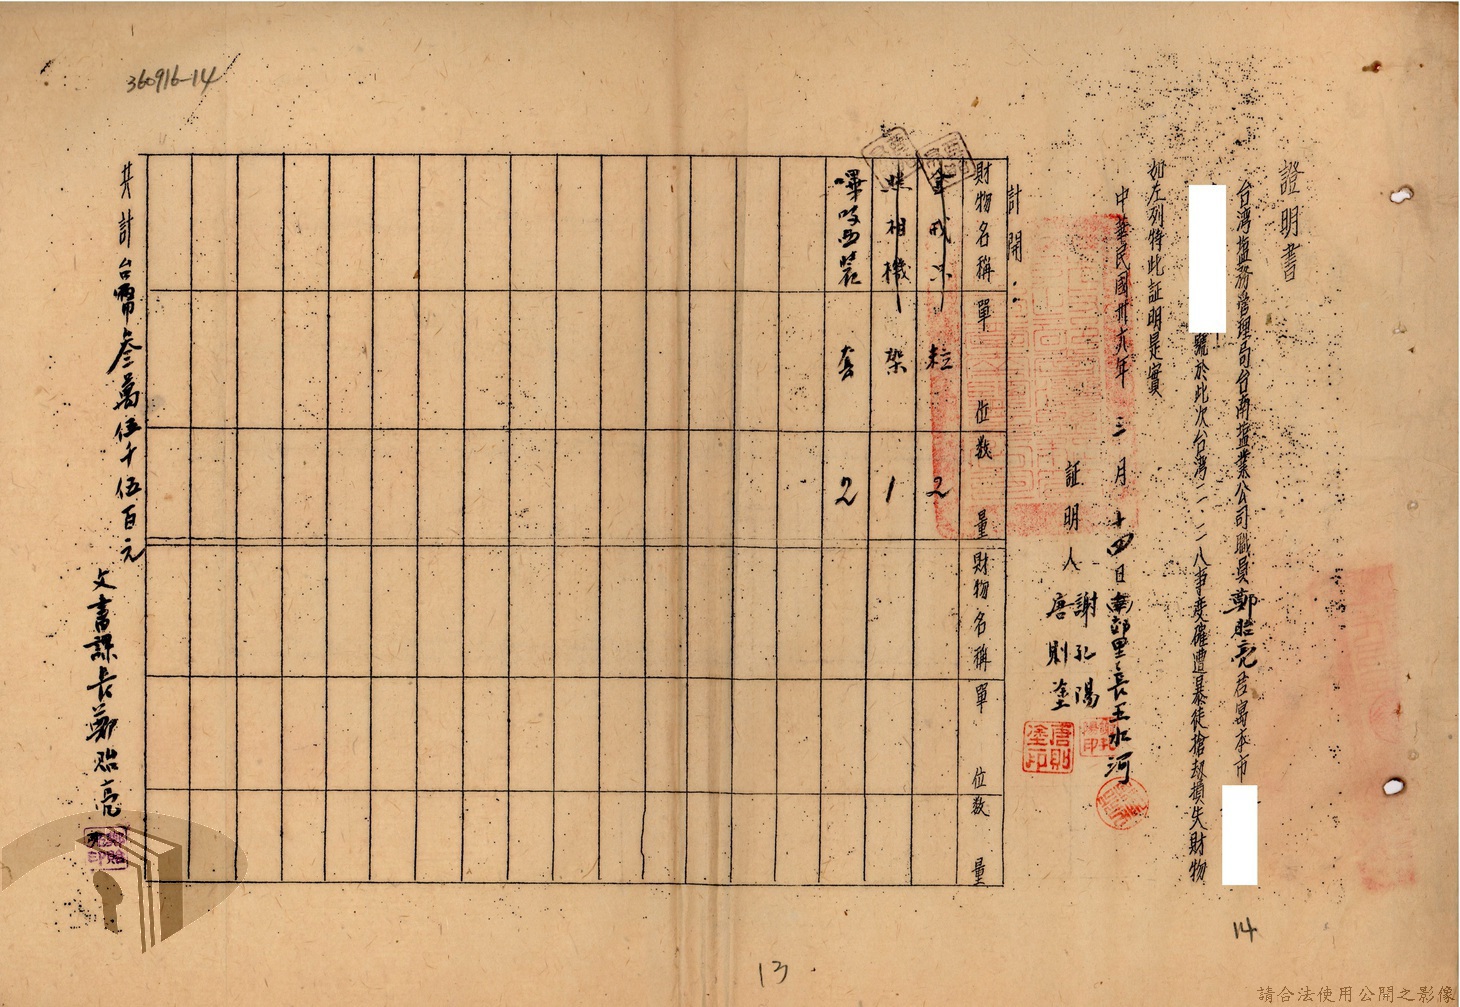 證明書
台湾塩務管理局台南塩業公司職員鄭貽亮君寓本市
號於此次台湾二·二八事変確遭暴徒搶刼損失財物
如左列特此証明是實
中華民國卅六年三月十四日南郊里長王水河
証明人謝孔陽
唐則塗
唐則塗印
計開：
財物名稱 單位 数量 財物名稱 單位 数量
金戒 粒 2
照相機 架 1
嗶吱西裝 套 2
共計台幣叁萬伍千伍百元
文書課長鄭貽亮
360916-14
14
13
請合法使用公開之影像